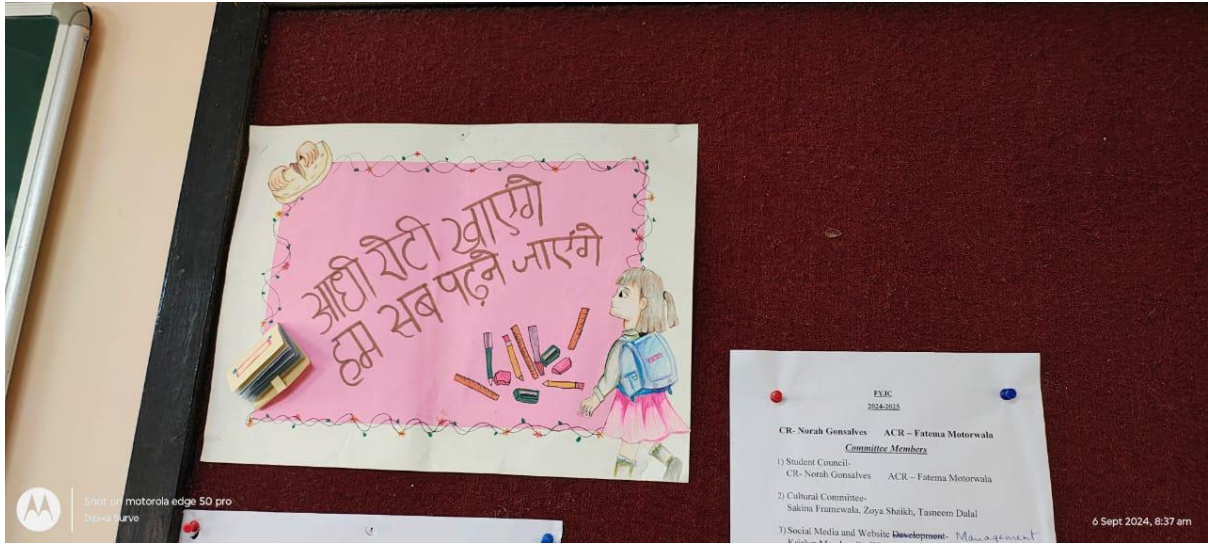 आधी रोटी खाएंगे
हम सब पढ़ने जाएंगे
FYJC
2024-2025
CR- Norah Gonsalves ACR – Fatema Motorwala
Committee Members
1) Student Council-
CR- Norah Gonsalves ACR – Fatema Motorwala
2) Cultural Committee-
Sakina Framewala, Zoya Shaikh, Tasneem Dalal
3) Social Media and Website Development- Management
Shot on motorola edge 50 pro
Dipika Surve
6 Sept 2024, 8:37 am